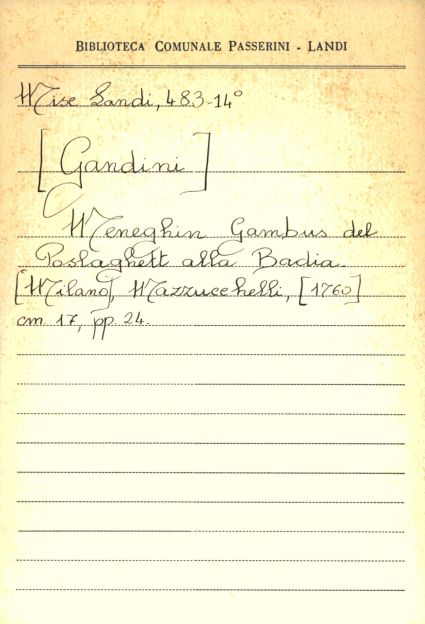 BIBLIOTECA COMUNALE PASSERINI - LANDI
Misc Landi, 483-14°
[Gandini]
Meneghin Gambus del
Poslaghett alla Badia.
[Milano], Mazzucchelli, [1760]
cm. 17, pp. 24.